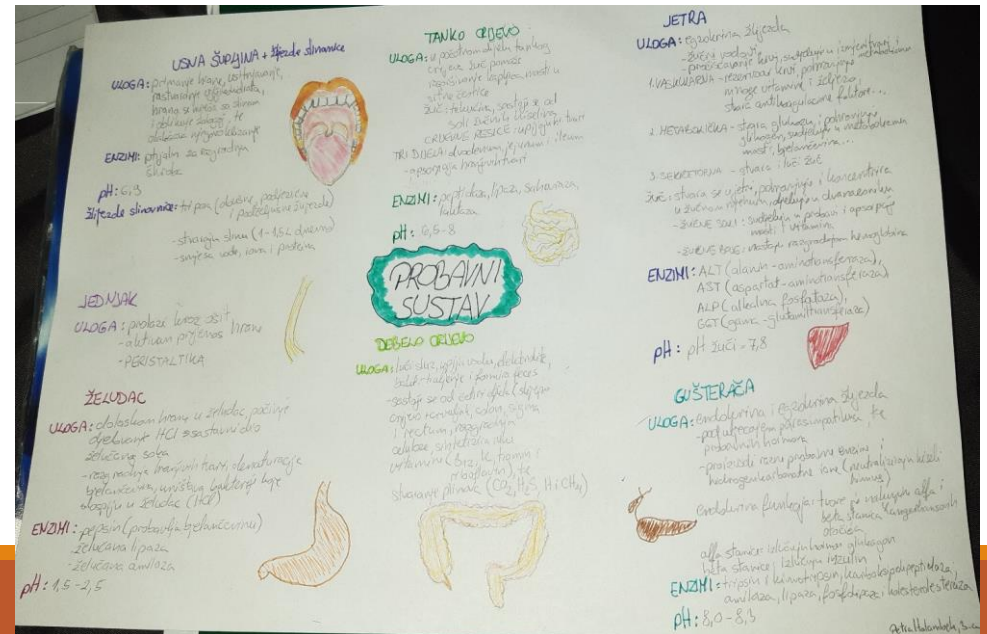 USNA ŠUPLJINA + žlijezde slinovnice
ULOGA: primanje hrane, usitnjavanje,
hrana se miješa sa slinom
i oblikuje zalogaj te
ENZIMI: ptijalin za razgradnju
škroba
pH: 6,3
žlijezde slinovnice: tri para
- stvaraju slinu (1-1,5L dnevno)
- smjesa vode, iona i proteina
JEDNJAK
ULOGA: prolazi kroz ošit
- aktivan prijenos hrane
- PERISTALTIKA
ŽELUDAC
ULOGA: dolaskom hrane u želudac počinje
djelovanje HCl = sastavni dio
želučanog soka
- razgradnja hranjivih tvari, denaturacija
bjelančevina, uništava bakterije koje
dospiju u želudac (HCl)
ENZIMI: pepsin (probavlja bjelančevine)
- želučana lipaza
- želučana amilaza
pH: 1,5-2,5
TANKO CRIJEVO
ULOGA: u početnom dijelu tankog
crijeva žuč pomaže
kapljica masti u
sitne čestice
žuč: tekućina, sastoji se od
soli žučnih kiselina
CRIJEVNE RESICE: upijaju tvari
TRI DIJELA: duodenum, jejunum i ileum
- apsorpcija hranjivih tvari
ENZIMI: peptidaze, lipaze, saharaza,
laktaza
pH: 6,5-8
PROBAVNI
SUSTAV
DEBELO CRIJEVO
ULOGA: luči sluz, upija vodu, elektrolite,
i formira feces
- sastoji se od
crijevo, colon, sigma
i rectum, razgrađuje
celulozu, sintetizira neke
vitamine (B12, K, tiamin i
riboflavin), te
stvaranje plinova (CO2, H2S, H i CH4)
JETRA
ULOGA: egzokrina žlijezda
- žučni vodovi
- pročišćavanje krvi, sudjeluje u
1. VASKULARNA - rezervoar krvi, pohranjuje
mnoge vitamine i željezo,
stvara antikoagulacijske faktore...
2. METABOLIČKA - stvara glukozu, i pohranjuje
glikogen, sudjeluje u metabolizmu
masti, bjelančevina...
3. SEKRETORNA - stvara i luči žuč
žuč: stvara se u jetri, pohranjuje i koncentrira
u žučnom mjehuru, djeluje u duodenumu
- ŽUČNE SOLI: sudjeluju u probavi i apsorpciji
masti i vitamina
- ŽUČNE BOJE: nastaju razgradnjom hemoglobina
ENZIMI: ALT (alanin-aminotransferaza),
AST (aspartat-aminotransferaza)
ALP (alkalna fosfataza),
GGT (gama-glutamiltransferaza)
pH: pH žuči = 7,8
GUŠTERAČA
ULOGA: endokrina i egzokrina žlijezda
- pod utjecajem parasimpatikusa, te
probavnih hormona
- proizvodi razne probavne enzime i
hidrogenkarbonatne ione (neutraliziraju kiseli
himus)
endokrina funkcija: tvore je nakupine alfa i
beta stanica Langerhansovih
otočića
alfa stanice: izlučuju hormon glukagon
beta stanice: izlučuju inzulin
ENZIMI: tripsin i kimotripsin, karboksipolipeptidaza,
amilaza, lipaza, fosfolipaze i kolesterolesteraza
pH: 8,0-8,3